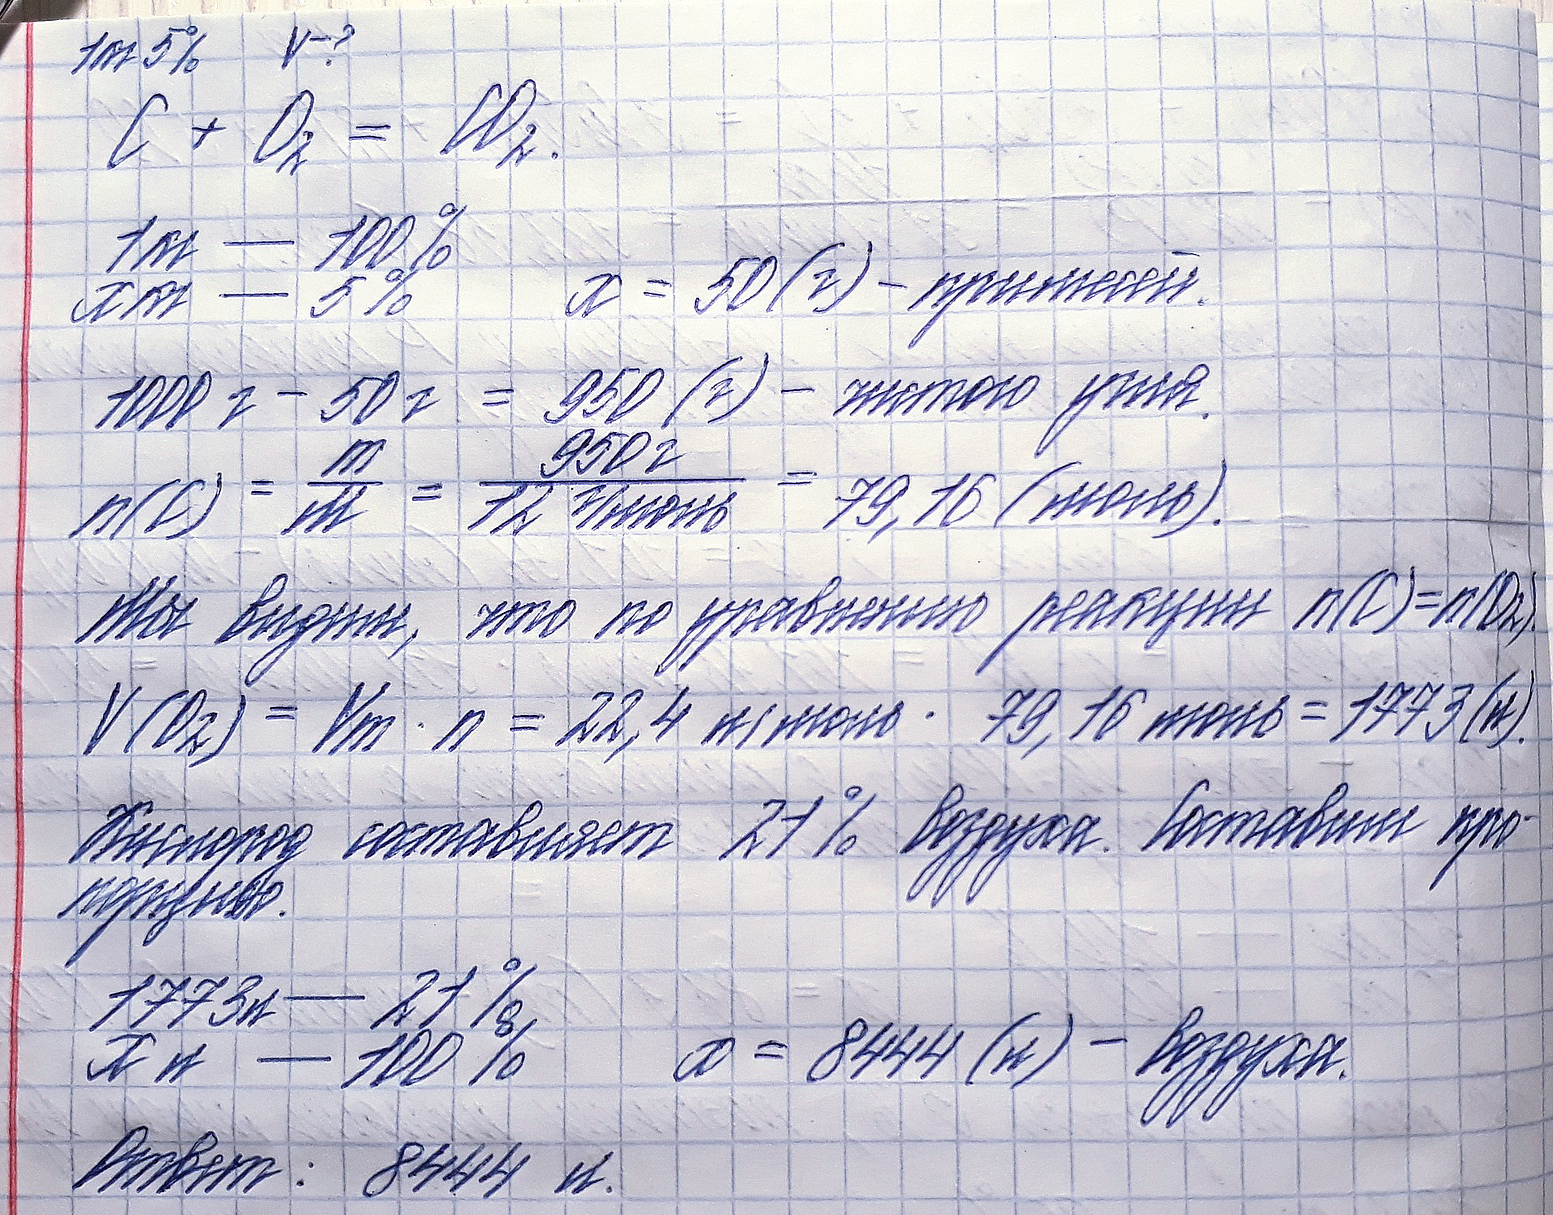 1кг 5% V-?
C + O₂ = CO₂.
1кг — 100%
xкг — 5% x = 50 (г) – примесей.
1000 г – 50 г = 950 (г) – чистого угля.
n(C) = m/M = 950 г/12 г/моль = 79,16 (моль).
Мы видим, что по уравнению реакции n(C)=n(O₂).
V(O₂) = Vm · n = 22,4 л/моль · 79,16 моль = 1773 (л).
Кислород составляет 21% воздуха. Составим про-
порцию.
1773л — 21%
x л — 100% x = 8444 (л) – воздуха.
Ответ: 8444 л.